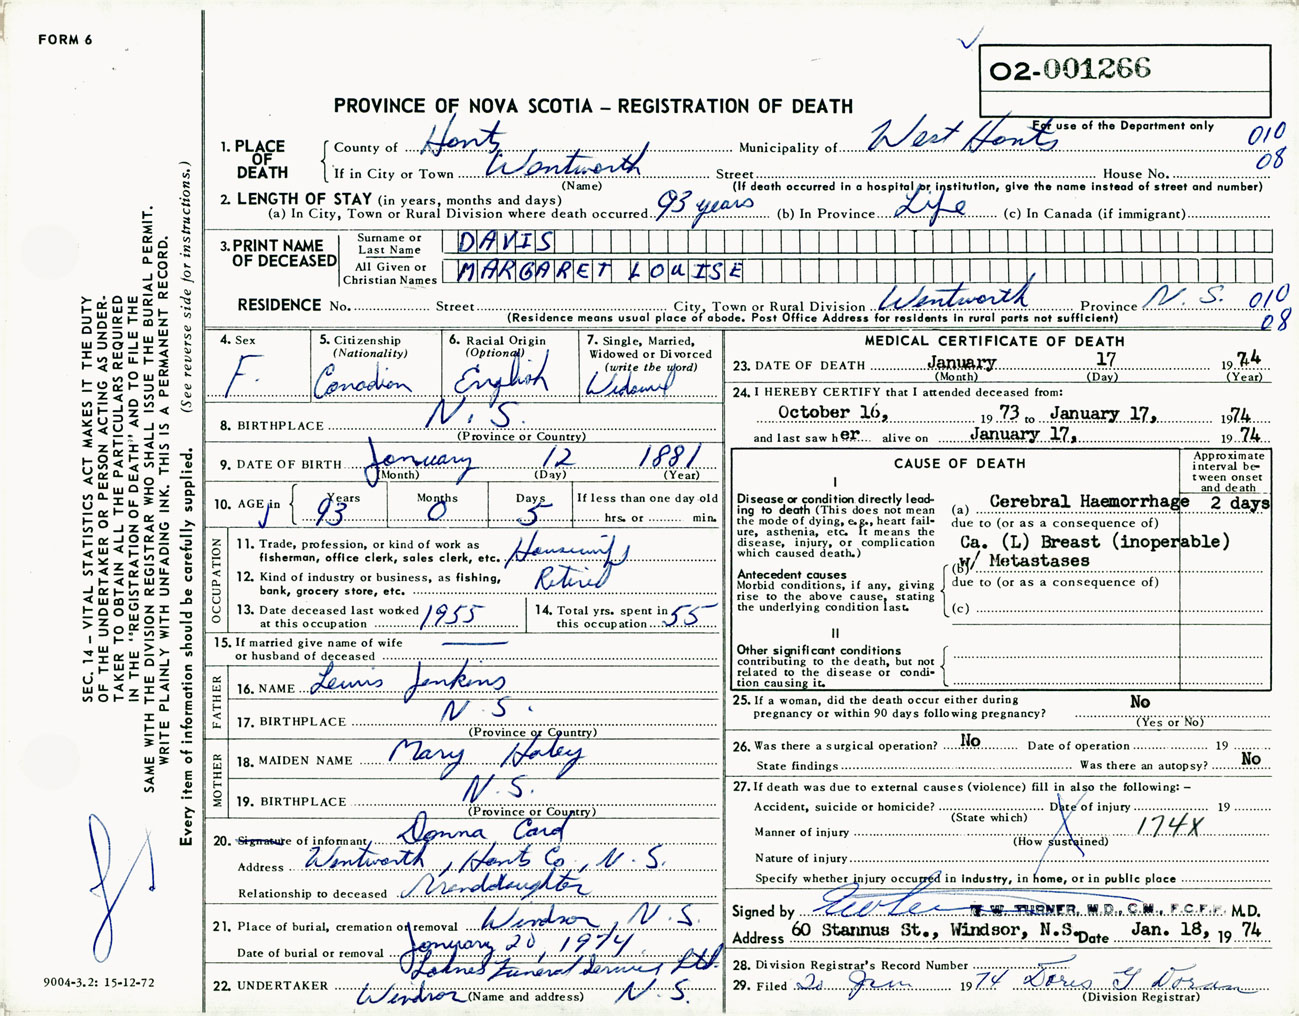 FORM 6
02-001266
PROVINCE OF NOVA SCOTIA – REGISTRATION OF DEATH
For use of the Department only
1. PLACE OF DEATH
County of Hants Municipality of West Hants 010
If in City or Town Wentworth Street House No. 08
(Name) (If death occurred in a hospital or institution, give the name instead of street and number)
2. LENGTH OF STAY (in years, months and days)
(a) In City, Town or Rural Division where death occurred 93 years (b) In Province Life (c) In Canada (if immigrant)
3. PRINT NAME OF DECEASED
Surname or Last Name DAVIS
All Given or Christian Names MARGARET LOUISE
RESIDENCE No. Street City, Town or Rural Division Wentworth Province N.S. 010
(Residence means usual place of abode. Post Office Address for residents in rural parts not sufficient) 08
4. Sex
F.
5. Citizenship
(Nationality)
Canadian
6. Racial Origin
(Optional)
English
7. Single, Married,
Widowed or Divorced
(write the word)
Widowed
8. BIRTHPLACE N.S.
(Province or Country)
9. DATE OF BIRTH January 12 1881
(Month) (Day) (Year)
10. AGE in Years Months Days If less than one day old
93 0 5 hrs. or min.
OCCUPATION
11. Trade, profession, or kind of work as
fisherman, office clerk, sales clerk, etc. Housewife
12. Kind of industry or business, as fishing,
bank, grocery store, etc. Retired
13. Date deceased last worked
at this occupation 1955
14. Total yrs. spent in
this occupation 55
15. If married give name of wife
or husband of deceased
FATHER
16. NAME Lewis Jenkins
17. BIRTHPLACE N.S.
(Province or Country)
MOTHER
18. MAIDEN NAME Mary Haley
19. BIRTHPLACE N.S.
(Province or Country)
20. Signature of informant Donna Card
Address Wentworth, Hants Co, N.S.
Relationship to deceased Granddaughter
21. Place of burial, cremation or removal Windsor, N.S.
Date of burial or removal January 20, 1974
Lohnes Funeral Service Ltd.
22. UNDERTAKER Windsor N.S.
(Name and address)
MEDICAL CERTIFICATE OF DEATH
23. DATE OF DEATH January 17 1974
(Month) (Day) (Year)
24. I HEREBY CERTIFY that I attended deceased from:
October 16, 1973 to January 17, 1974
and last saw her alive on January 17, 1974
CAUSE OF DEATH
Approximate
interval be-
tween onset
and death
I
Disease or condition directly lead-
ing to death (This does not mean
the mode of dying, e.g., heart fail-
ure, asthenia, etc. It means the
disease, injury, or complication
which caused death.)
(a) Cerebral Haemorrhage 2 days
due to (or as a consequence of)
Ca. (L) Breast (inoperable)
(b) w/ Metastases
due to (or as a consequence of)
(c)
Antecedent causes
Morbid conditions, if any, giving
rise to the above cause, stating
the underlying condition last.
II
Other significant conditions
contributing to the death, but not
related to the disease or condi-
tion causing it.
25. If a woman, did the death occur either during
pregnancy or within 90 days following pregnancy? No
(Yes or No)
26. Was there a surgical operation? No Date of operation 19
State findings Was there an autopsy? No
27. If death was due to external causes (violence) fill in also the following: –
Accident, suicide or homicide? Date of injury 19
(State which)
Manner of injury 174X
(How sustained)
Nature of injury
Specify whether injury occurred in industry, in home, or in public place
Signed by W. TURNER, M.D., C.M., F.C.F.P. M.D.
Address 60 Stannus St., Windsor, N.S. Date Jan. 18, 1974
28. Division Registrar's Record Number
29. Filed 20 Jan 1974 Doris G Doran
(Division Registrar)
SEC. 14 – VITAL STATISTICS ACT MAKES IT THE DUTY
OF THE UNDERTAKER OR PERSON ACTING AS UNDER-
TAKER TO OBTAIN ALL THE PARTICULARS REQUIRED
IN THE "REGISTRATION OF DEATH" AND TO FILE THE
SAME WITH THE DIVISION REGISTRAR WHO SHALL ISSUE THE BURIAL PERMIT.
WRITE PLAINLY WITH UNFADING INK. THIS IS A PERMANENT RECORD.
Every item of information should be carefully supplied. (See reverse side for instructions.)
9004-3.2: 15-12-72